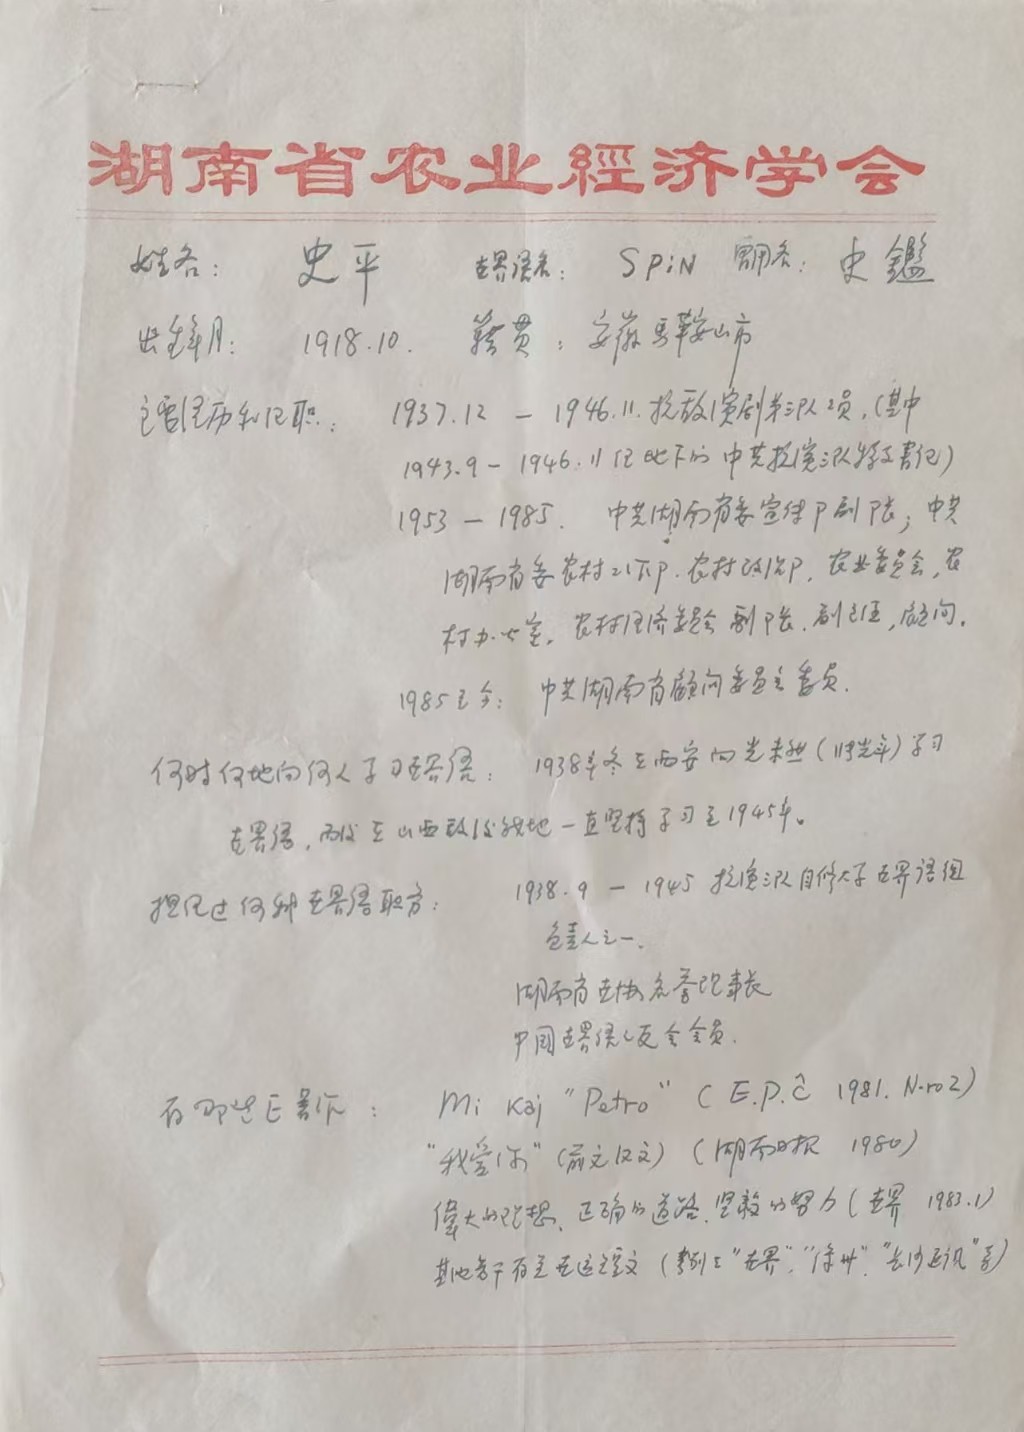 湖南省农业經济学会
姓名： 史平 世界语名： SPiN 曾用名： 史鑑
出生年月： 1918.10. 籍贯： 安徽马鞍山市
主要经历和任职： 1937.12 — 1946.11. 抗敌演剧第三队队员，（其中
1943.9 — 1946.11 任地下的中共抗演三队特支书记）
1953 — 1985. 中共湖南省委宣传部副部长；中共
湖南省委农村工作部、农村政治部，农业委员会，农
村办公室，农村经济委员会副部长、副主任，顾问。
1985至今： 中共湖南省顾问委员会委员．
何时何地向何人学习世界语： 1938年冬在西安向光未然（张光年）学习
世界语，而后在山西敌后战地一直坚持学习至1945年。
担任过何种世界语职务： 1938.9 — 1945 抗演三队自修大学世界语组
负责人之一．
湖南省世协名誉理事长
中国世界语之友会会员．
有那些E著作： Mi Kaj "Petro" （E.P.Ĉ 1981. N-ro2）
"我爱你"（前文汉文）（湖南日报 1980）
偉大的理想、正确的道路、坚毅的努力（世界 1983.1）
其他若干有关世运论文（类别在"世界"、"徐州"、"长沙世讯"等）